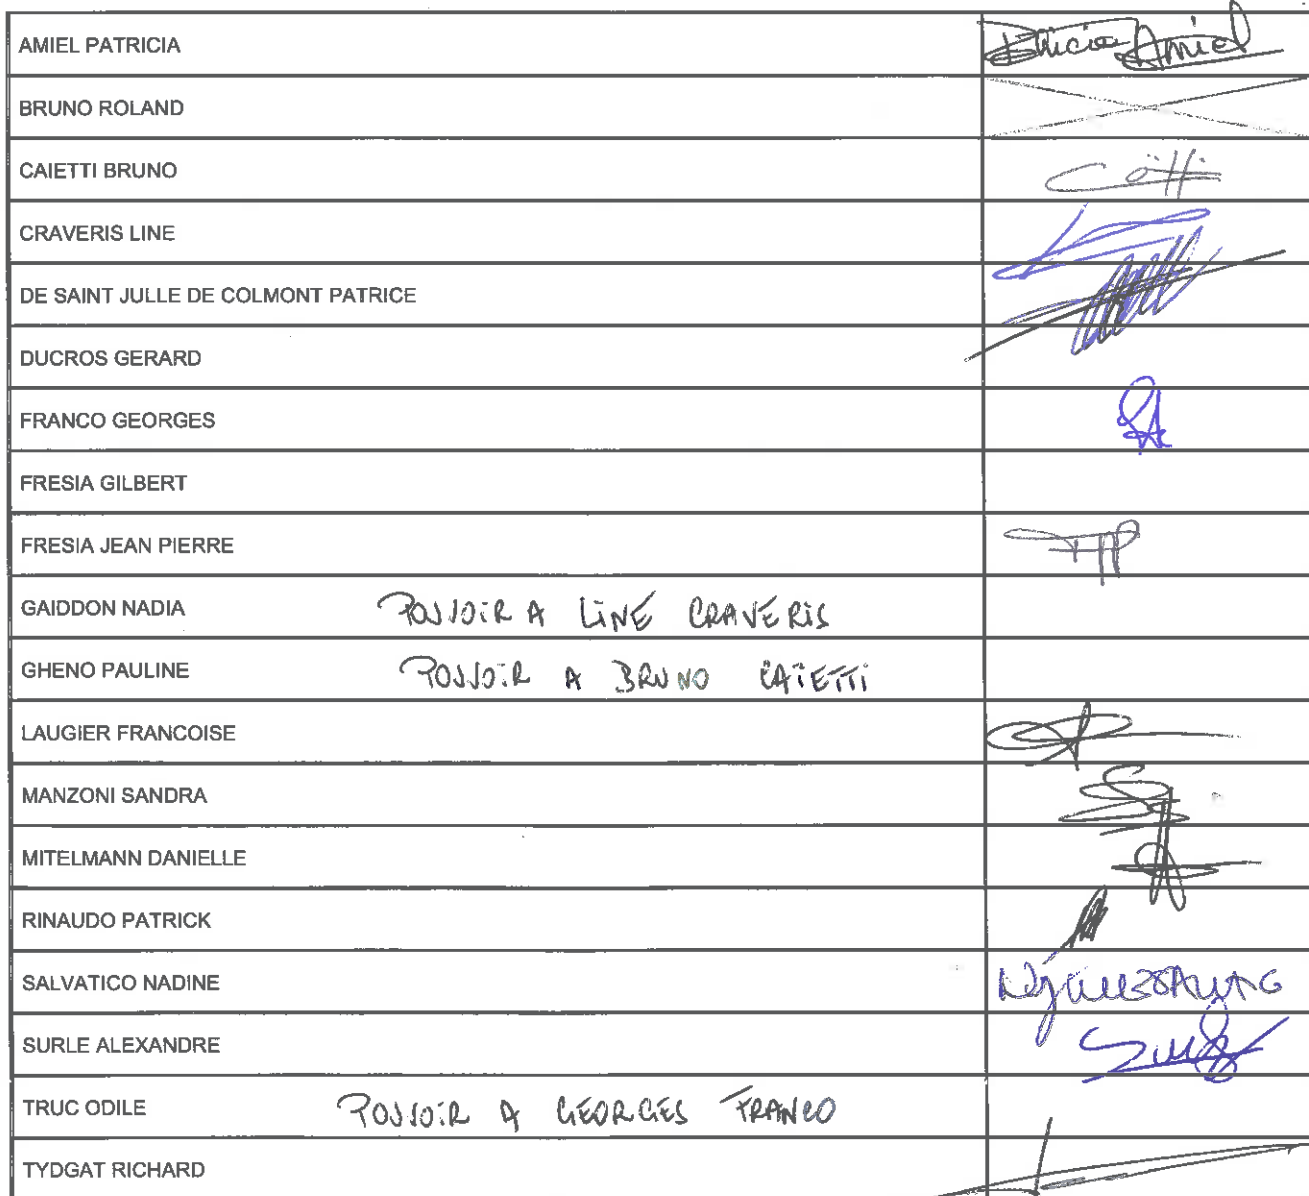 AMIEL PATRICIA
Patricia Amiel
BRUNO ROLAND
CAIETTI BRUNO
CRAVERIS LINE
DE SAINT JULLE DE COLMONT PATRICE
DUCROS GERARD
FRANCO GEORGES
FRESIA GILBERT
FRESIA JEAN PIERRE
GAIDDON NADIA POUVOIR A LINE CRAVERIS
GHENO PAULINE POUVOIR A BRUNO CAIETTI
LAUGIER FRANCOISE
MANZONI SANDRA
MITELMANN DANIELLE
RINAUDO PATRICK
SALVATICO NADINE
SURLE ALEXANDRE
TRUC ODILE POUVOIR A GEORGES FRANCO
TYDGAT RICHARD